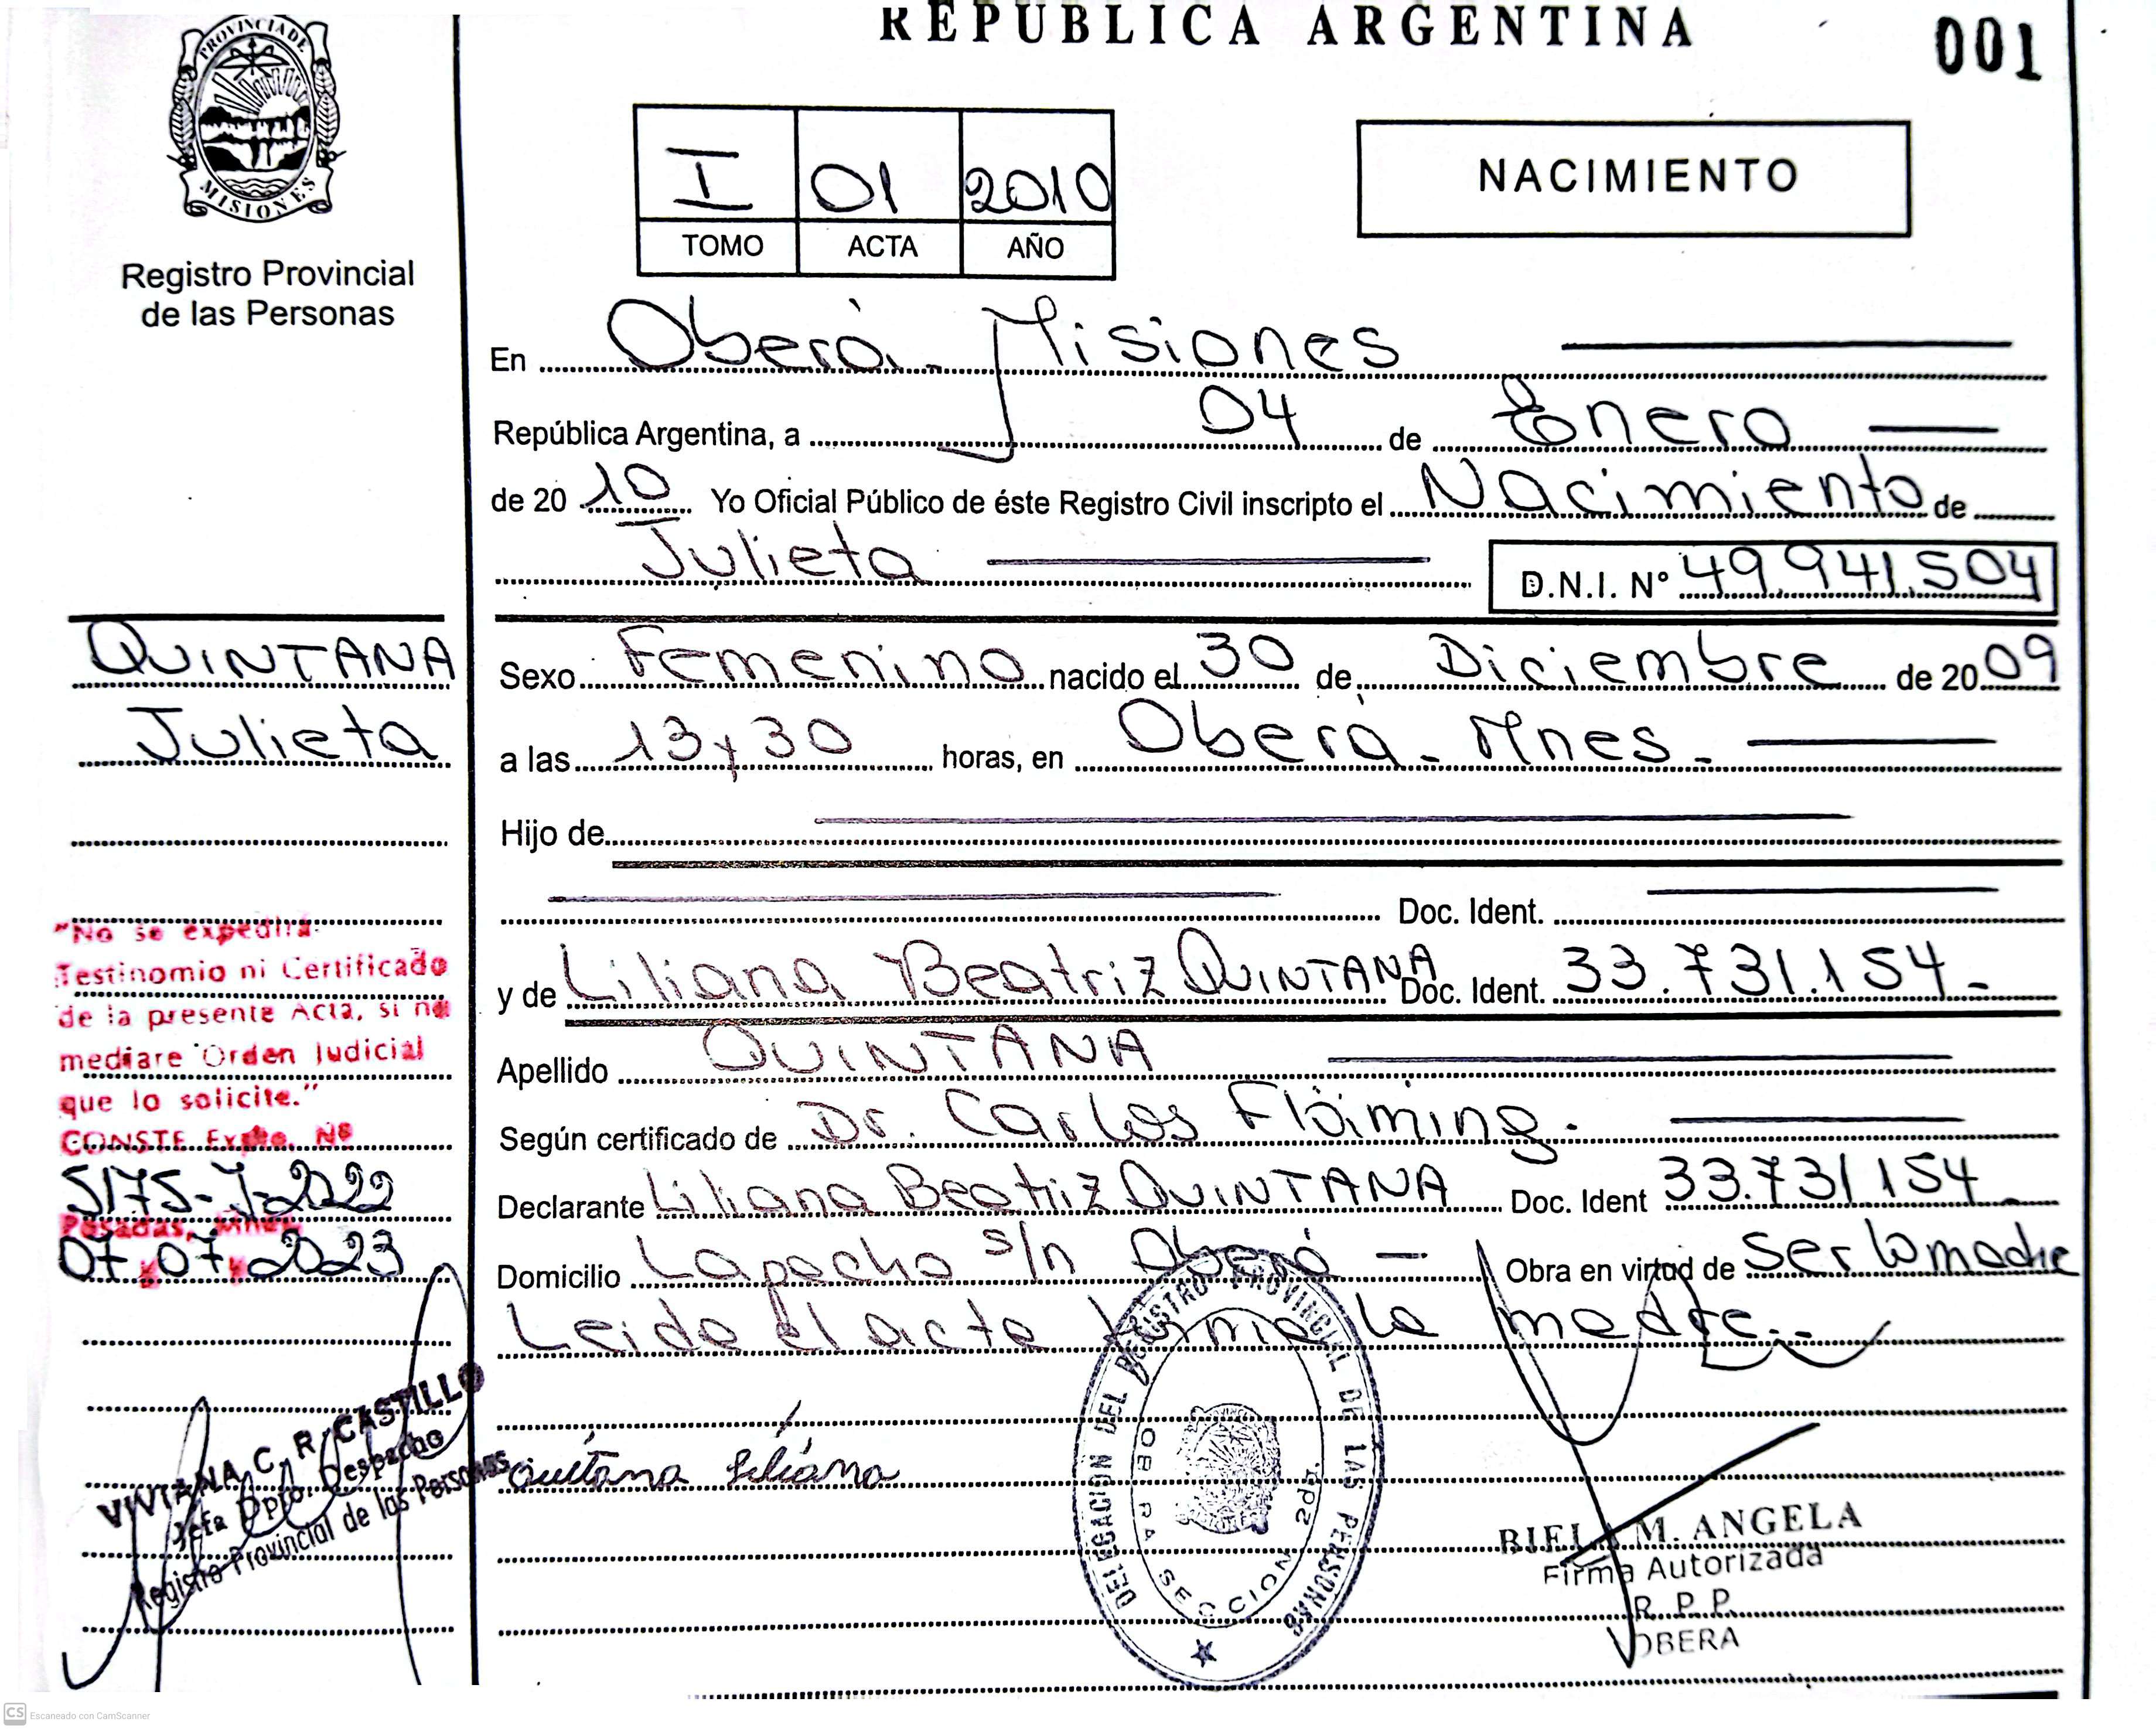 REPUBLICA ARGENTINA
001
PROVINCIA DE
MISIONES
Registro Provincial
de las Personas
I 01 2010
TOMO ACTA AÑO
NACIMIENTO
En Oberá - Misiones
República Argentina, a 04 de Enero
de 20 10 Yo Oficial Público de éste Registro Civil inscripto el Nacimiento de
Julieta
D.N.I. Nº 49.941.504
QUINTANA
Julieta
Sexo Femenino nacido el 30 de Diciembre de 2009
a las 13 y 30 horas, en Oberá - Mnes -
Hijo de
Doc. Ident.
y de Liliana Beatriz QUINTANA Doc. Ident. 33.731.154.-
Apellido QUINTANA
Según certificado de Dr. Carlos
Declarante Liliana Beatriz QUINTANA Doc. Ident 33.731154 -
Domicilio Lapacho s/n Oberá - Obra en virtud de ser la madre
Leida el acta firma la madre.-
"No se expedirá
Testinomio ni Certificado
de la presente Acta, si no
mediare Orden Judicial
que lo solicite."
CONSTE Expte. Nº
5175-J-2022
Posadas, Mnes.
07 07 2023
VIVIANA C. R. CASTILLO
Jefa Dpto. Despacho
Registro Provincial de las Personas
Quitana Liliana
DELEGACION DEL REGISTRO PROVINCIAL DE LAS PERSONAS
OBERA SECCION 2da.
M. ANGELA
Firma Autorizada
R. P. P.
OBERA
CS Escaneado con CamScanner